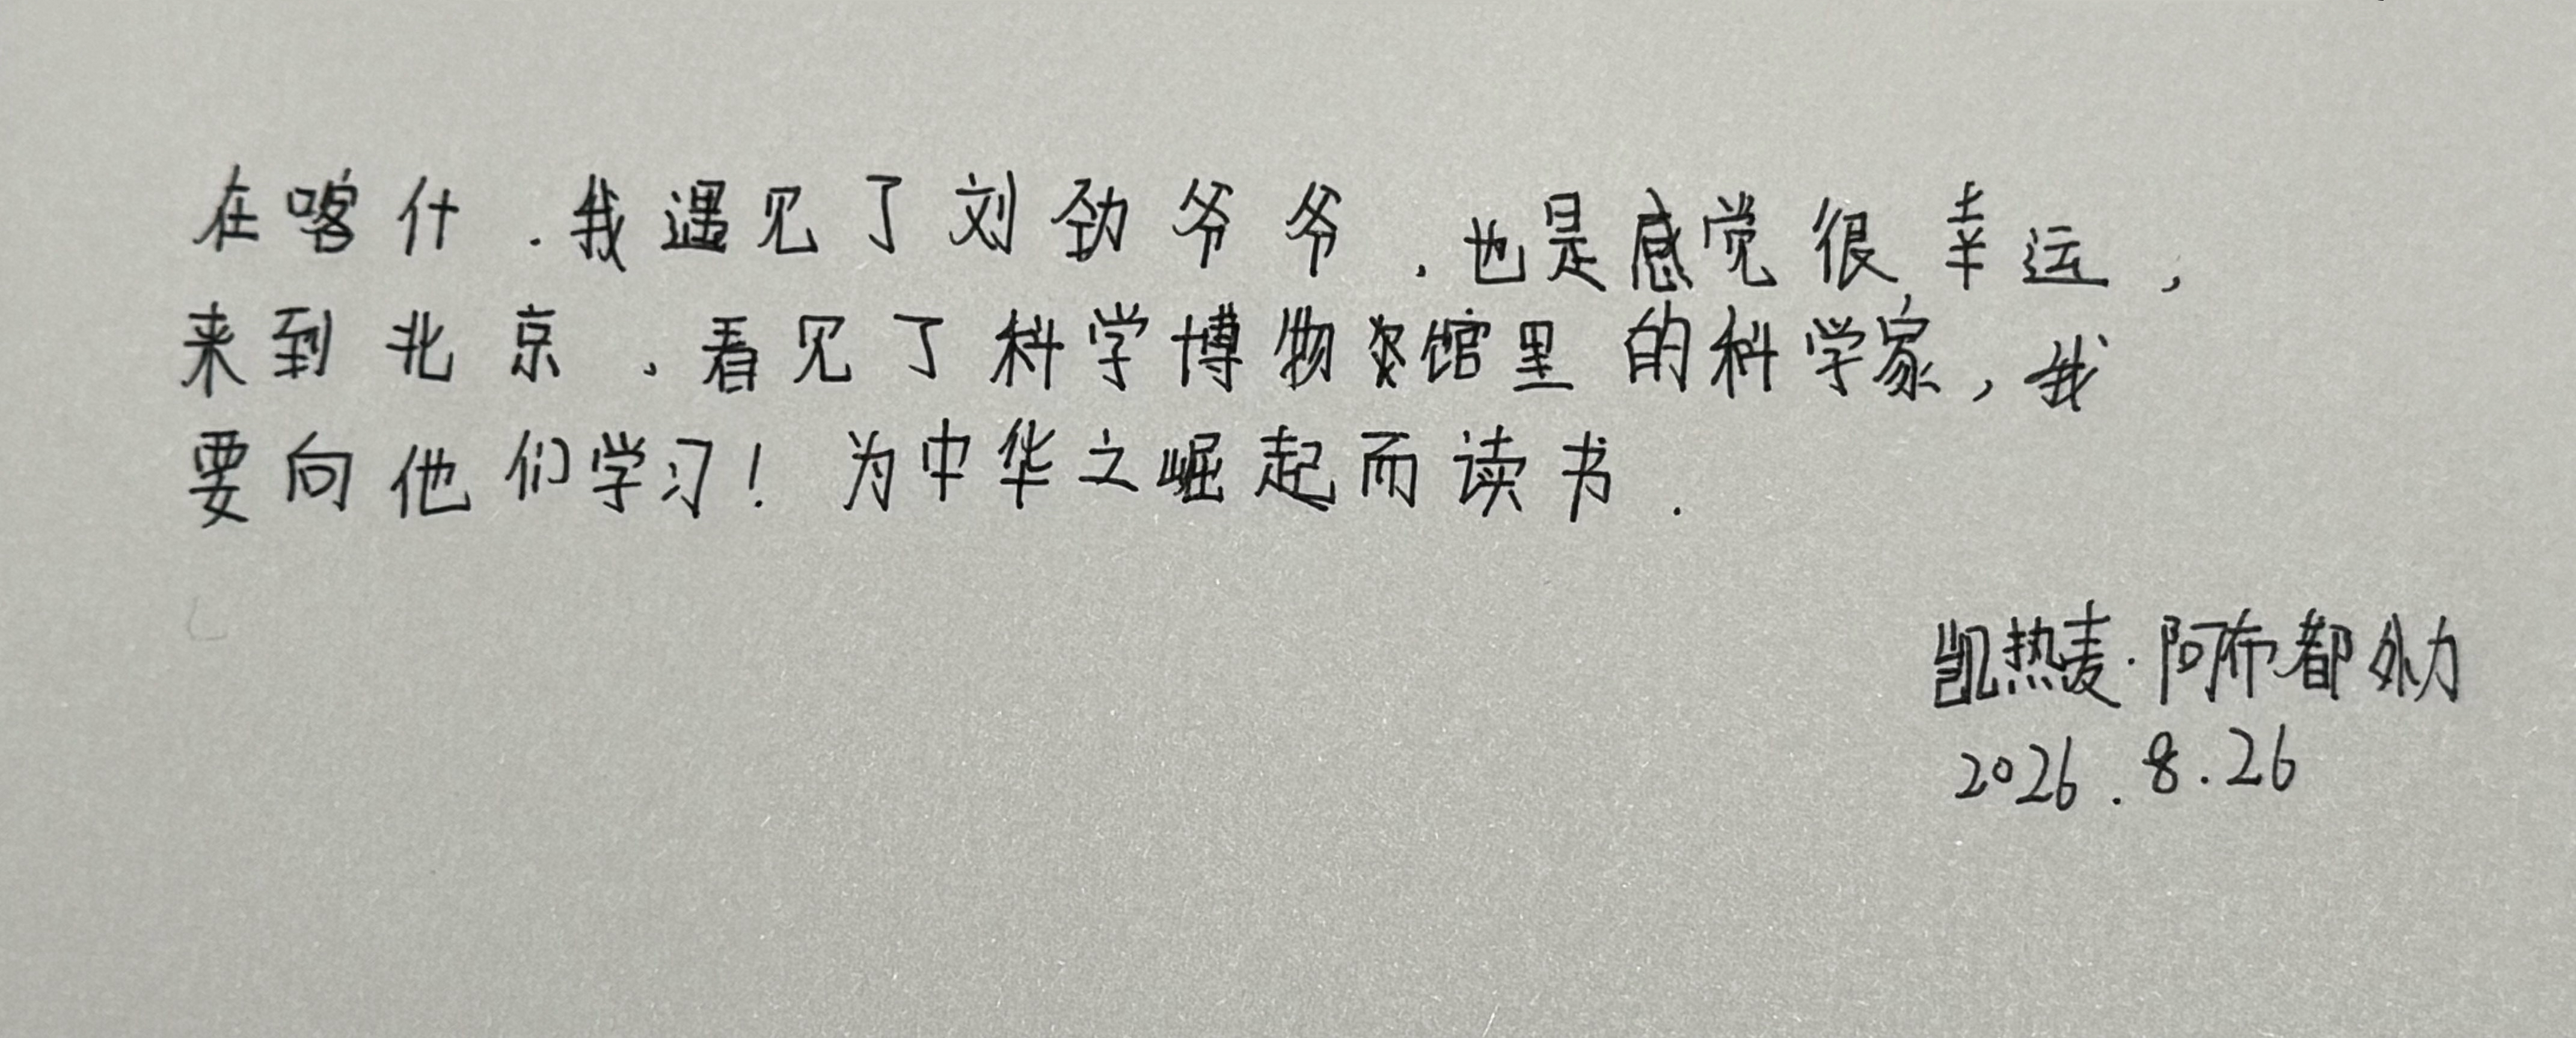 在喀什,我遇见了刘劲爷爷,也是感觉很幸运,
来到北京、看见了科学博物馆里的科学家,我
要向他们学习!为中华之崛起而读书.
凯热麦·阿布都外力
2026.8.26